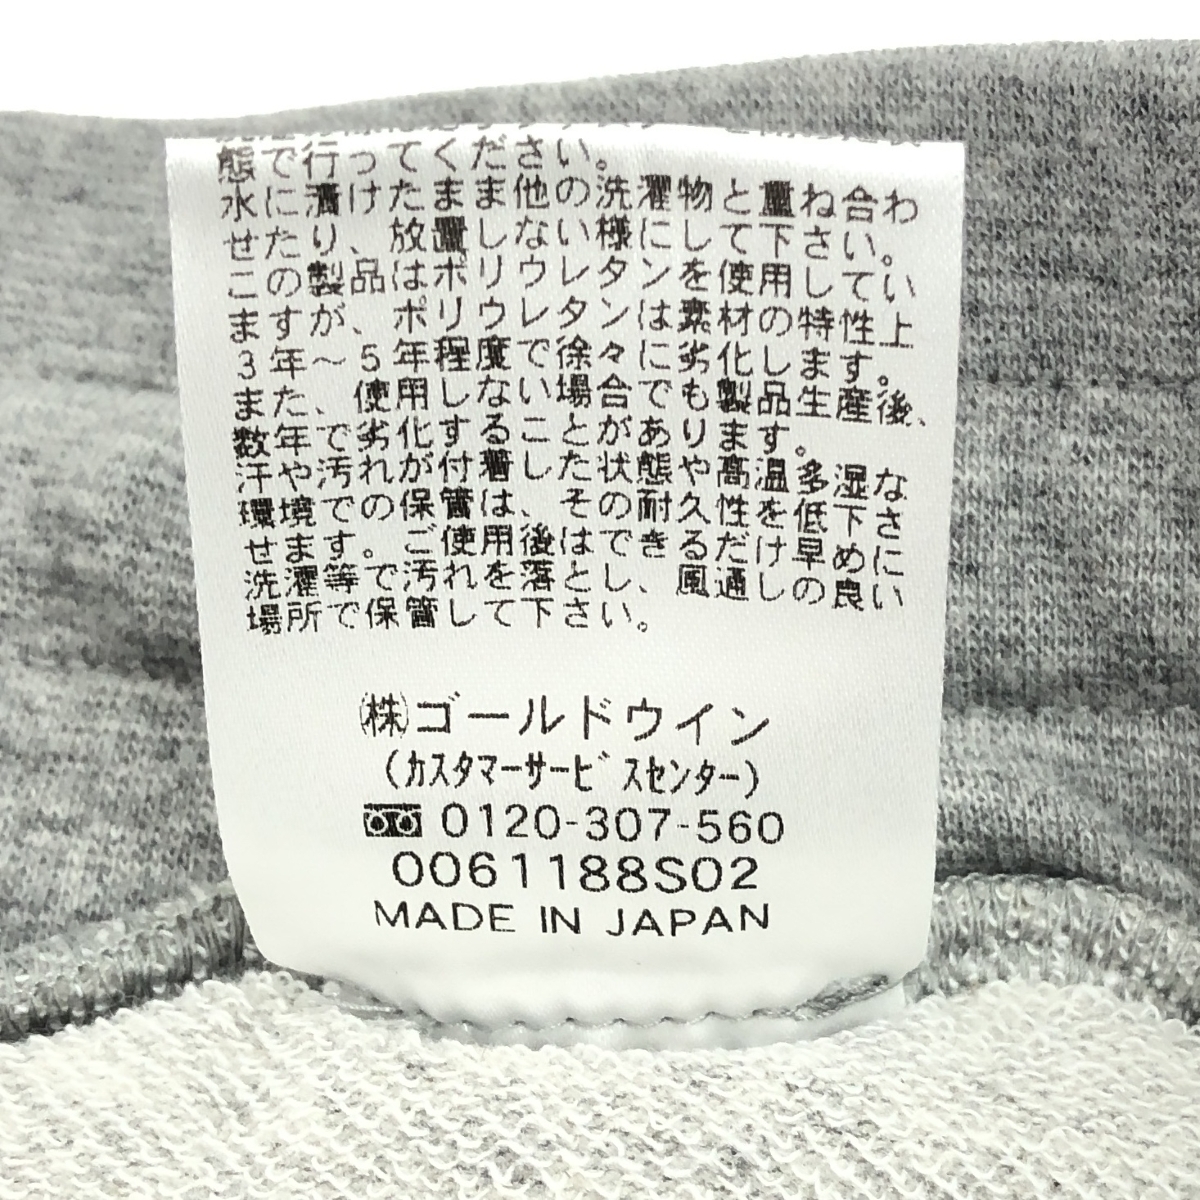 態で行ってください。
水に漬けたまま他の洗濯物と重ね合わ
せたり、放置しない様にして下さい。
この製品はポリウレタンを使用してい
ますが、ポリウレタンは素材の特性上
3年～5年程度で徐々に劣化します。
また、使用しない場合でも製品生産後、
数年で劣化することがあります。
汗や汚れが付着した状態や高温多湿な
環境での保管は、その耐久性を低下さ
せます。ご使用後はできるだけ早めに
洗濯等で汚れを落とし、風通しの良い
場所で保管して下さい。
㈱ゴールドウイン
(カスタマーサービスセンター)
0120-307-560
0061188S02
MADE IN JAPAN